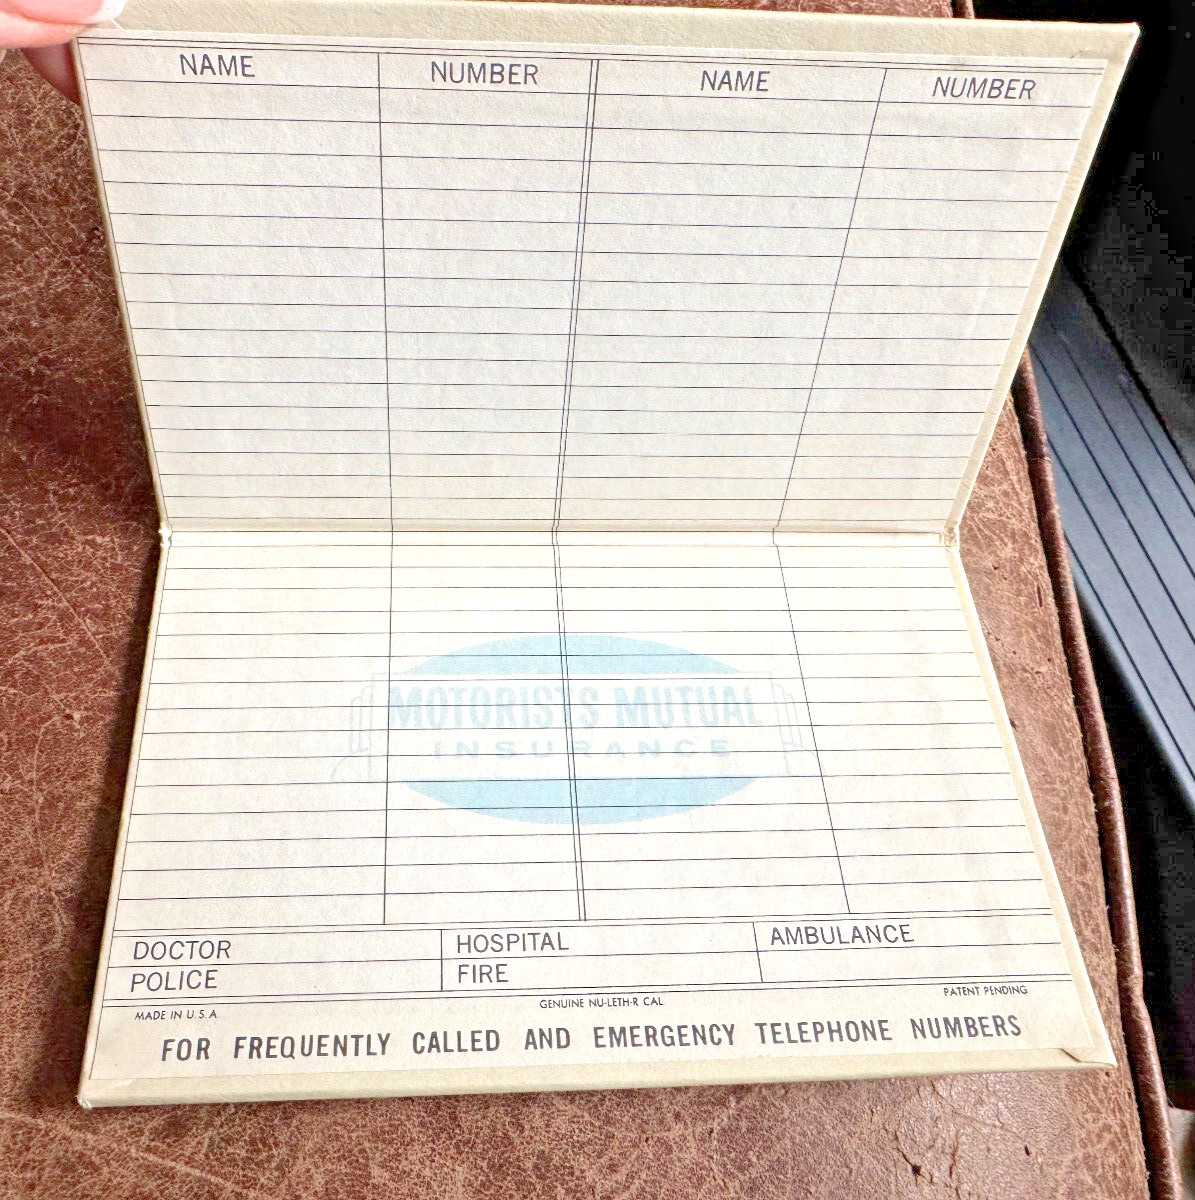 NAME NUMBER NAME NUMBER
MOTORISTS MUTUAL
INSURANCE
DOCTOR HOSPITAL AMBULANCE
POLICE FIRE
MADE IN U.S.A. GENUINE NU-LETH-R CAL PATENT PENDING
FOR FREQUENTLY CALLED AND EMERGENCY TELEPHONE NUMBERS